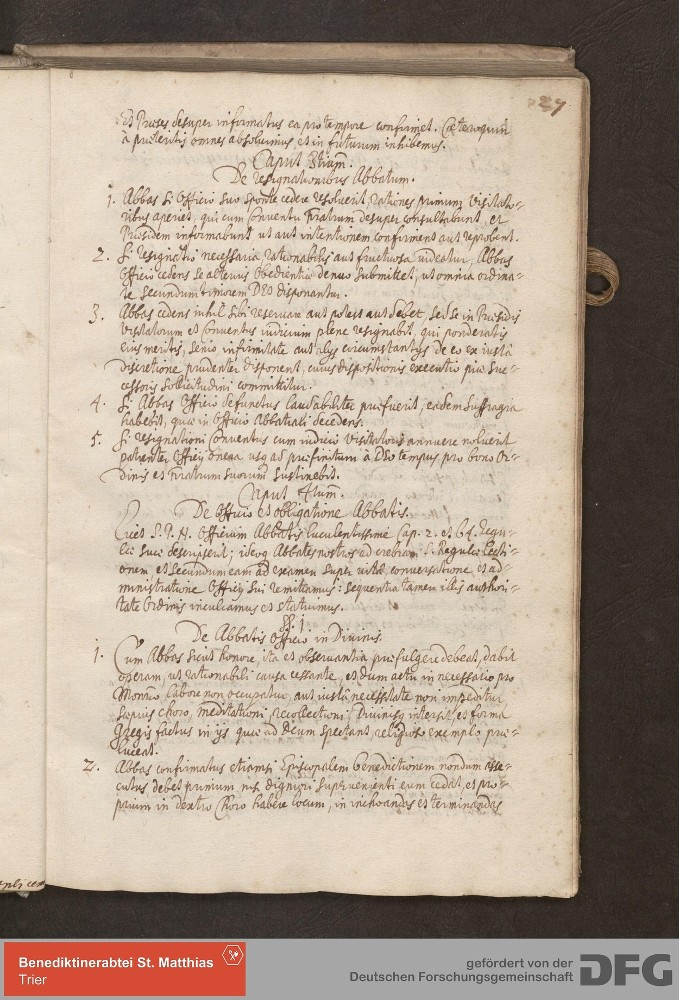 27
et Præses desuper informatus ea pro tempore confirmet. Cæteroquin
à præteritis omnes absolvimus, et in futurum inhibemus.
Caput 3tium.
De resignationibus Abbatum.
1. Abbas si Officio suo sponte cedere resolverit, rationes primum Visitato-
ribus aperiet, qui cum Conventu Fratrum desuper consultabunt, et
Præsidem informabunt, ut aut intentionem confirment aut reprobent.
2. Si resignatio necessaria, rationabilis aut fructuosa videatur, Abbas
Officio cedens se alterius Obedientiæ denuo submittet, ut omnia ordina-
te secundum timorem DEO disponantur.
3. Abbas cedens nihil sibi reservare aut potest aut debet, sed se in Præsidis
Visitatorum et Conventus iudicium plene resignabit, qui ponderatis
eius meritis, senio, infirmitate aut alijs circumstantijs de eo ex iustâ
discretione prudenter disponent, cuius dispositionis executio piæ Suc-
cessoris sollicitudini committitur.
4. Si Abbas Officio defunctus laudabiliter præfuerit, eadem suffragia
habebit, quæ in Officio Abbatiali decedens.
5. Si resignationi Conventus cum iudicio Visitatoris annuere noluerit
patienter Officij onera usq ad præfinitum à DEO tempus pro bono Or-
dinis et Fratrum suorum sustinebit.
Caput 4tum.
De Officio et obligatione Abbatis.
Licet S. P. N. Officium Abbatis luculentissime Cap. 2. et 64. Regu-
læ suæ descripserit; ideoq Abbates nostros ad crebram S. Regulæ Lecti-
onem, et secundum eam ad examen super vitæ conversatione et ad-
ministratione Officij sui remittamus: sequentia tamen illis authori-
tate Ordinis inculcamus et statuimus.
§. 1
De Abbatis Officio in Divinis.
1. Cum Abbas sicut honore, ita et observantia præfulgere debeat, dabit
operam, ut rationabili causa cessante, et dum actu in necessario pro
Monrio labore non occupatur, aut iustâ necessitate non impeditur
sæpius choro, meditationi, recollectioni, Divinisq intersit, et forma
Gregis factus in ijs quæ ad Deum spectant, religioso exemplo præ-
luceat.
2. Abbas confirmatus etiamsi Episcopalem benedictionem nondum asse-
cutus debet primum nisi digniori supervenienti eum cedat, et pro-
prium in dextro Choro habere locum, in inchoandis et terminandis
Benediktinerabtei St. Matthias
Trier
gefördert von der
Deutschen Forschungsgemeinschaft
DFG